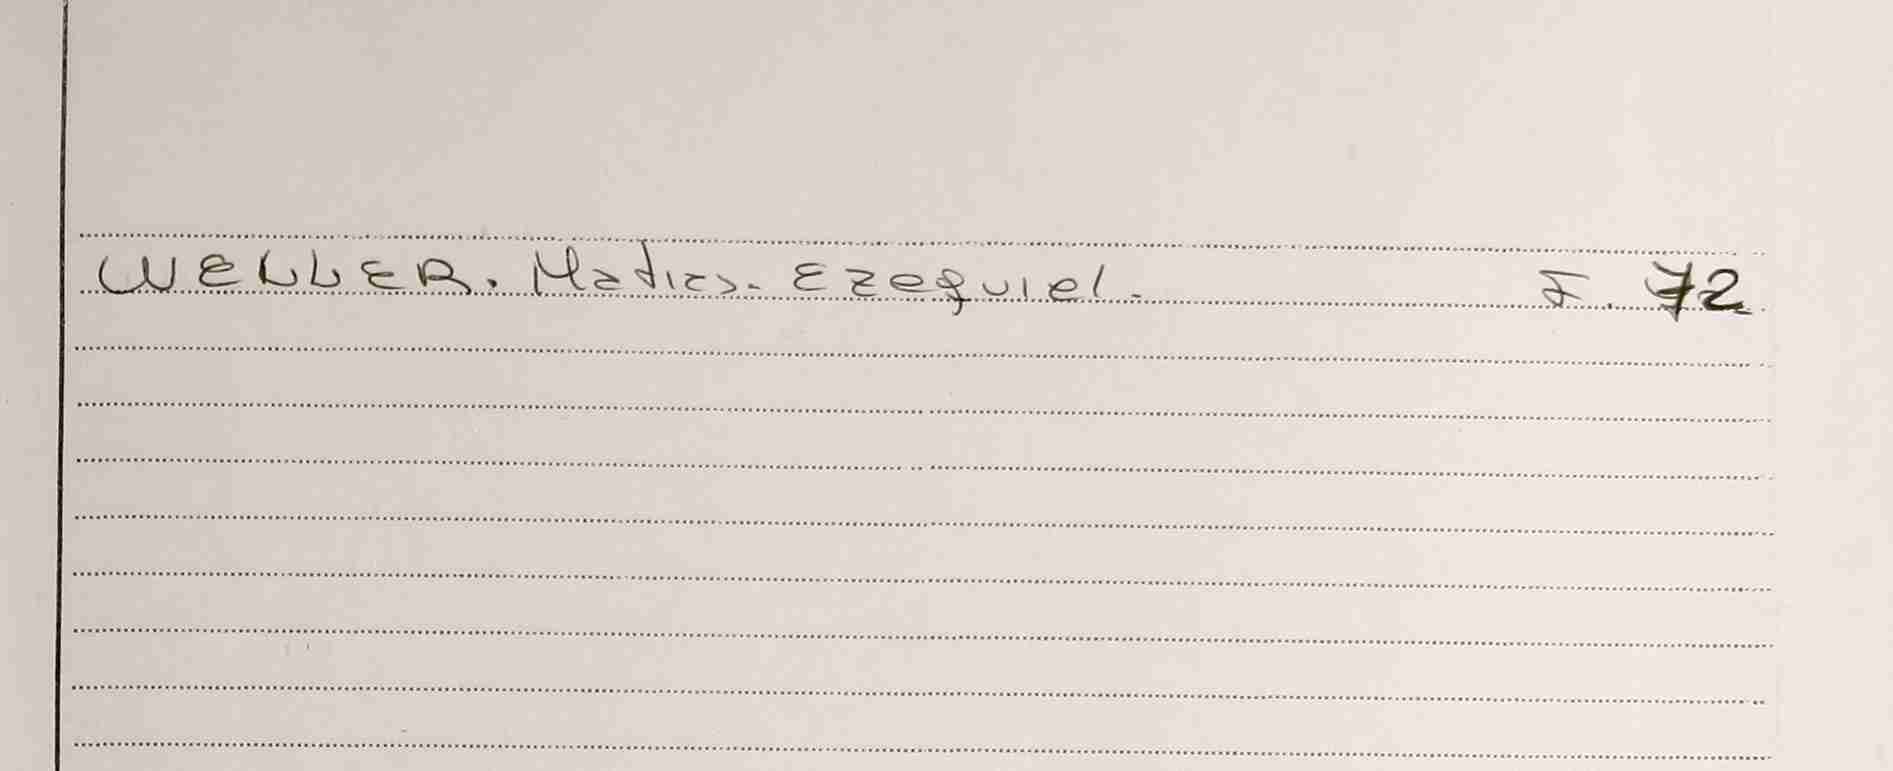 WELLER. Matias. Ezequiel. F. 72